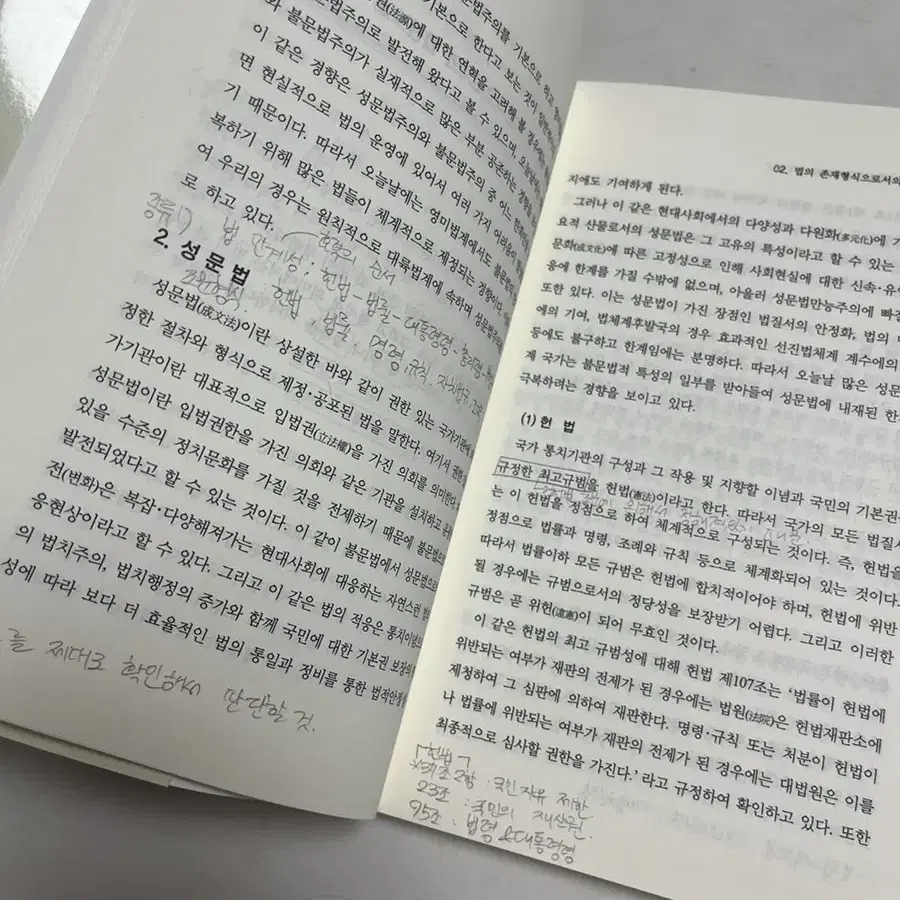 법주의를 기본으로 하고
권(法源)에 대한 연혁을 고려해 볼 경우에는
법주의로 발전해 왔다고 볼 수 있으며, 오늘날에는
와 불문법주의가 실재적으로 많은 부분 공존하는 경향을
이 같은 경향은 성문법주의와 불문법주의 중 어느
면 현실적으로 법의 운영에 있어서 여러 가지 어려움이
기 때문이다. 따라서 오늘날에는 영미법계에서도
복하기 위해 많은 법들이 체계적으로 제정되는 경향이다.
여 우리의 경우는 원칙적으로 대륙법계에 속하며 성문법주의
로 하고 있다.
법 단계성: 헌법-법률-대통령령-
2. 성 문 법
조문형식 헌법, 법률, 명령, 규칙, 자치법규, 조약
성문법(成文法)이란 상설한 바와 같이 권한 있는 국가기관에
정한 절차와 형식으로 제정·공포된 법을 말한다. 여기서 권한
가기관이란 대표적으로 입법권(立法權)을 가진 의회를 의미한다.
성문법이란 입법권한을 가진 의회와 같은 기관을 설치하고
있을 수준의 정치문화를 가질 것을 전제하기 때문에 불문법으로
발전되었다고 할 수 있는 것이다. 이 같이 불문법에서 성문법으로
전(변화)은 복잡·다양해져가는 현대사회에 대응하는 자연스런
응현상이라고 할 수 있다. 그리고 이 같은 법의 적응은 통치이념으로
의 법치주의, 법치행정의 증가와 함께 국민에 대한 기본권 보장의
성에 따라 보다 더 효율적인 법의 통일과 정비를 통한 법적안정성
를 제대로 확인해서 판단할 것.
02. 법의 존재형식으로서의
지에도 기여하게 된다.
그러나 이 같은 현대사회에서의 다양성과 다원화(多元化)에
효적 산물로서의 성문법은 그 고유의 특성이라고 할 수 있는
문화(成文化)에 따른 고정성으로 인해 사회현실에 대한 신속·유
응에 한계를 가질 수밖에 없으며, 아울러 성문법만능주의에 빠질
또한 있다. 이는 성문법이 가진 장점인 법질서의 안정화, 법의
에의 기여, 법체계후발국의 경우 효과적인 선진법체계 계수에의
등에도 불구하고 한계임에는 분명하다. 따라서 오늘날 많은 성문
제 국가는 불문법적 특성의 일부를 받아들여 성문법에 내재된 한
극복하려는 경향을 보이고 있다.
(1) 헌 법
국가 통치기관의 구성과 그 작용 및 지향할 이념과 국민의 기본권을
규정한 최고규범을 헌법(憲法)이라고 한다. 따라서 국가의 모든 법질서
는 이 헌법을 정점으로 하여 체계적으로 구성되는 것이다. 즉, 헌법을
정점으로 법률과 명령, 조례와 규칙 등으로 체계화되어 있는 것이다.
따라서 법률이하 모든 규범은 헌법에 합치적이어야 하며, 헌법에 위반
될 경우에는 규범으로서의 정당성을 보장받기 어렵다. 그리고 이러한
규범은 곧 위헌(違憲)이 되어 무효인 것이다.
이 같은 헌법의 최고 규범성에 대해 헌법 제107조는 ‘법률이 헌법에
위반되는 여부가 재판의 전제가 된 경우에는 법원(法院)은 헌법재판소에
제청하여 그 심판에 의하여 재판한다. 명령·규칙 또는 처분이 헌법이
나 법률에 위반되는 여부가 재판의 전제가 된 경우에는 대법원은 이를
최종적으로 심사할 권한을 가진다.’ 라고 규정하여 확인하고 있다. 또한
「헌법」
*37조 2항 : 국민자유 제한
23조 : 국민의 재산권.
75조 : 법령&대통령령